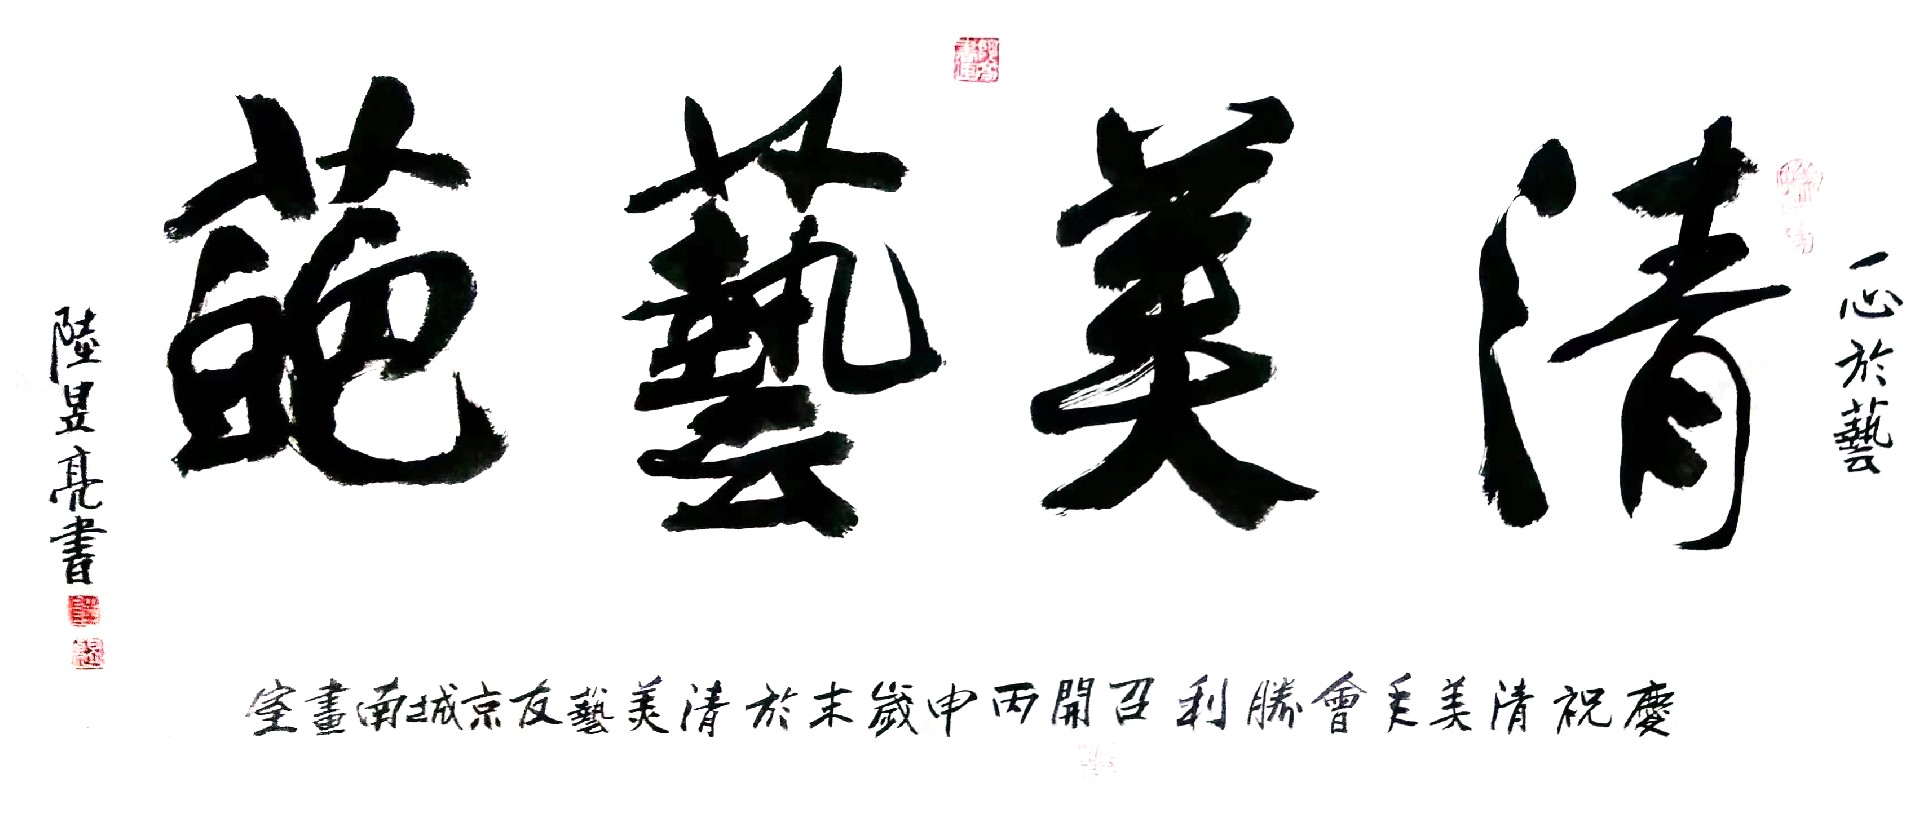 一心於藝
清美藝葩
慶祝清美年會勝利召開丙申歲末於清美藝友京城南畫室
陸昱亮書